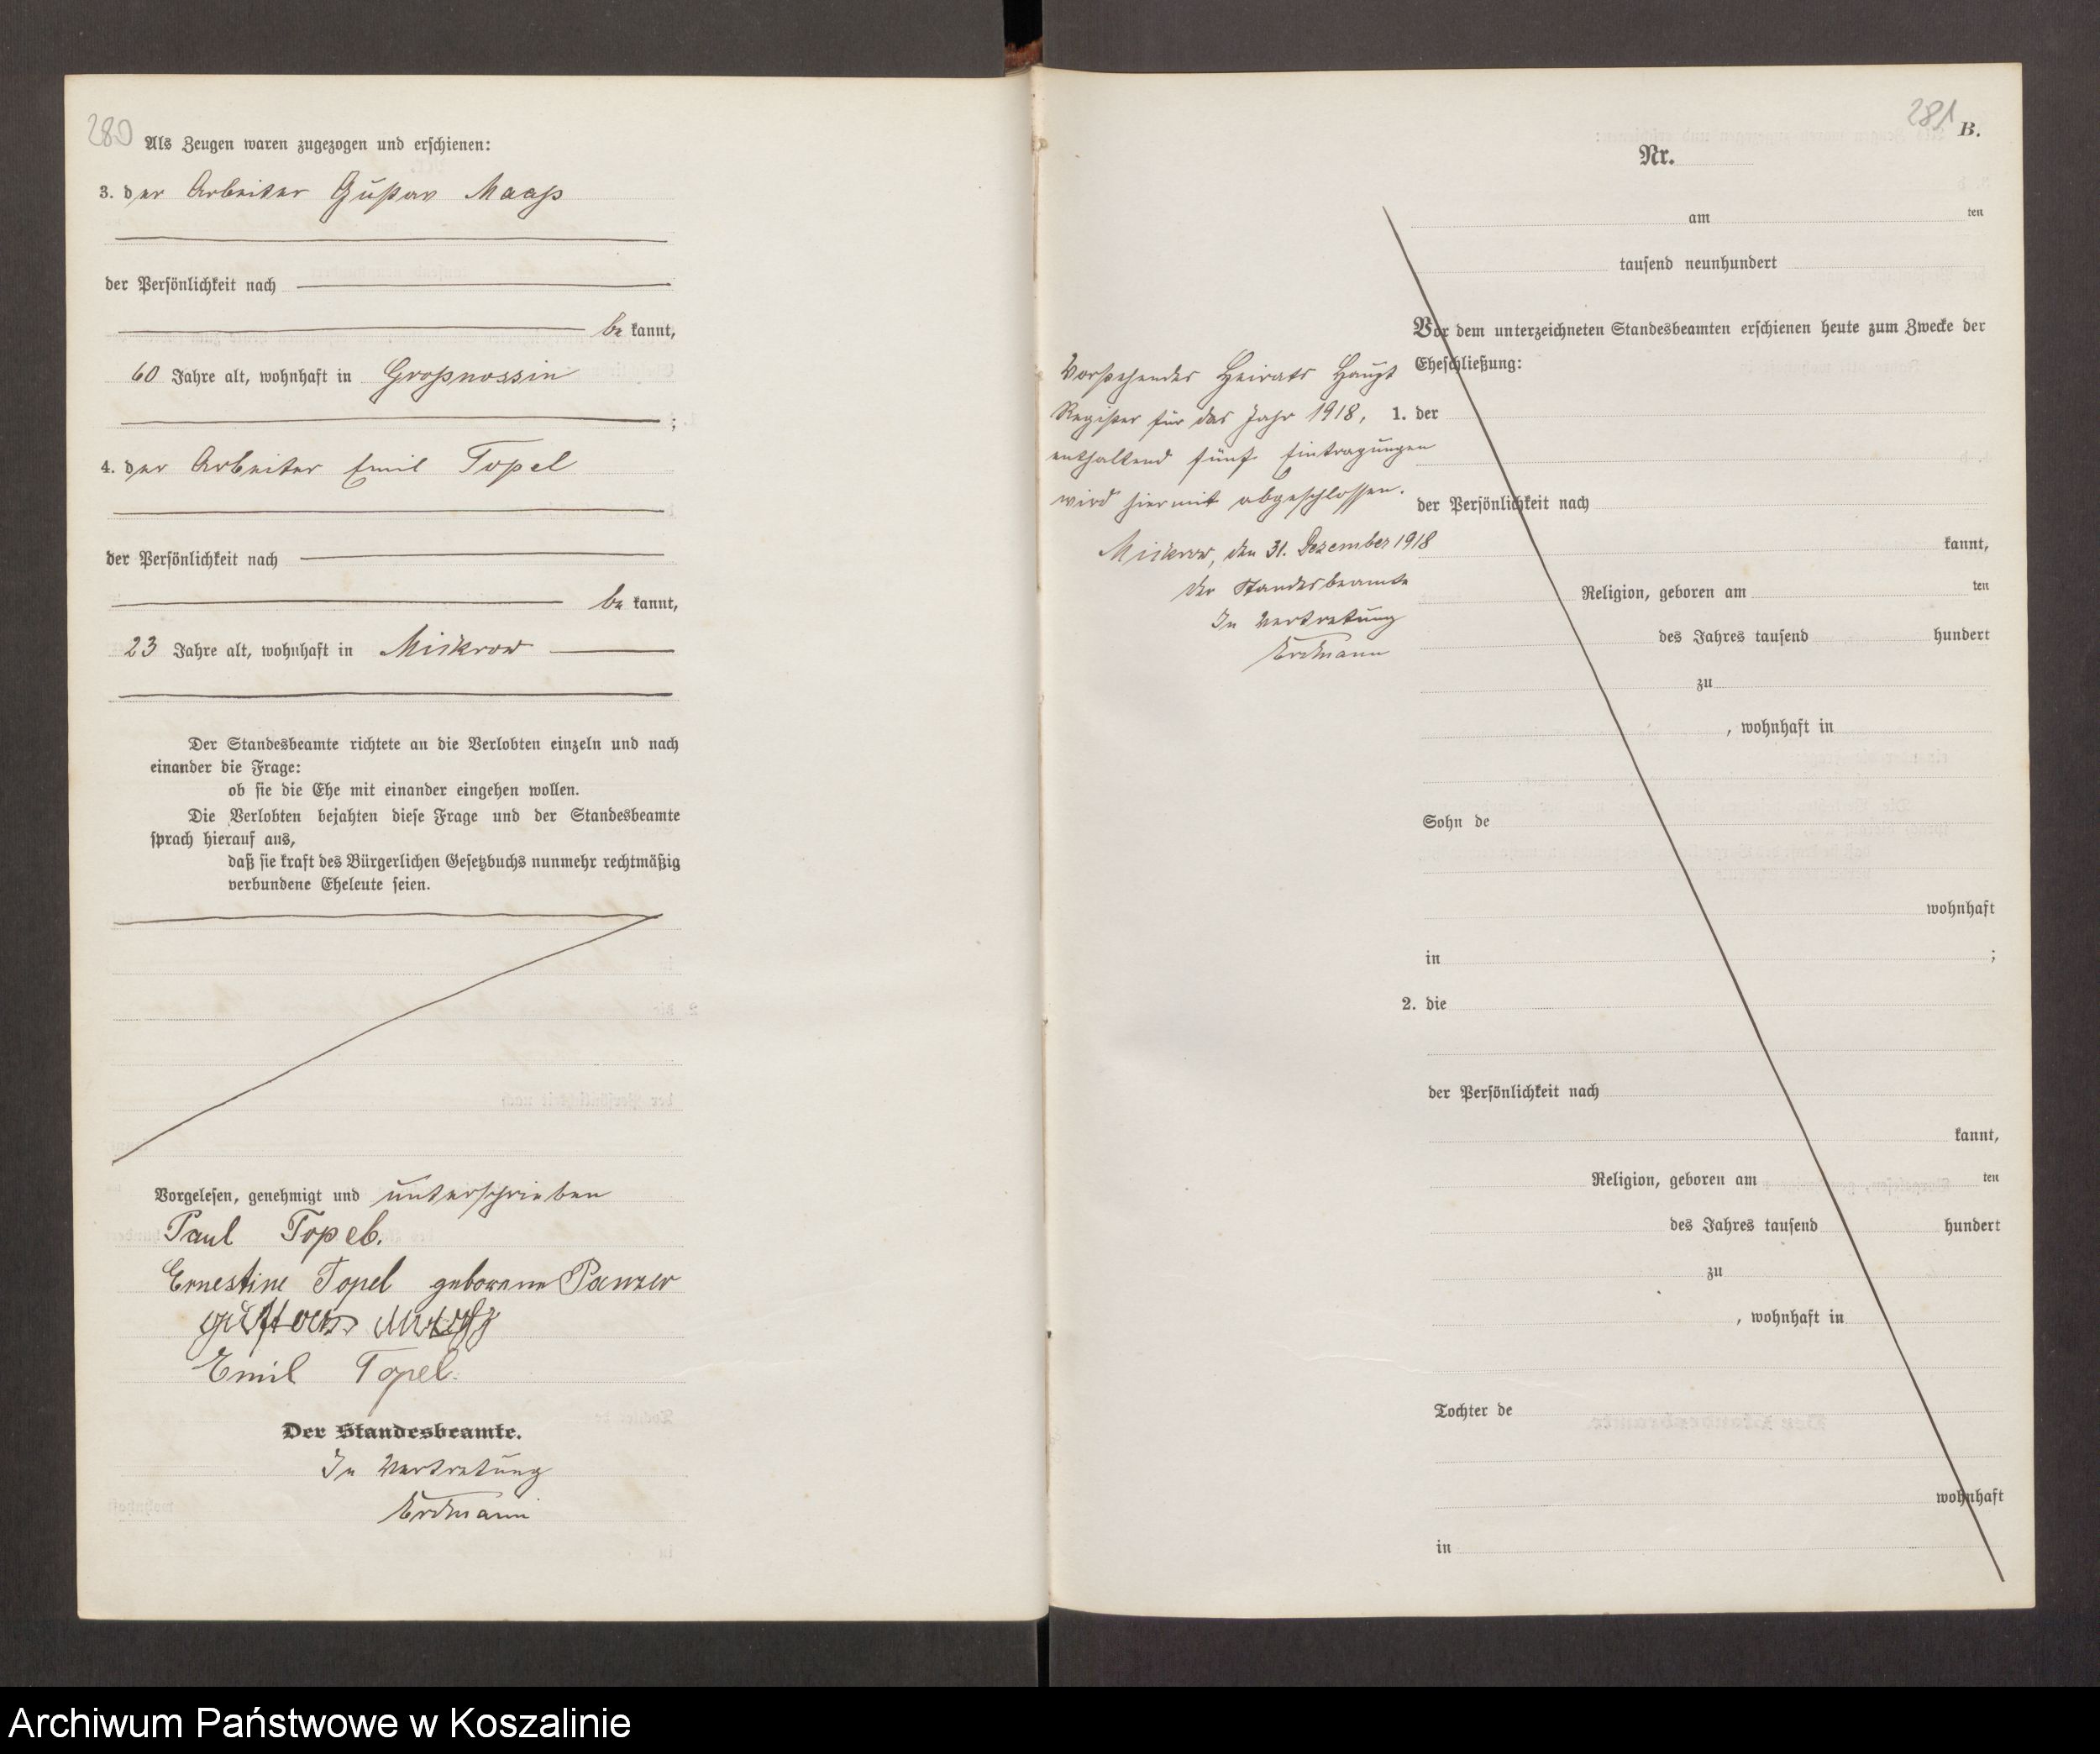 280
Als Zeugen waren zugezogen und erschienen:
3. der Arbeiter Gustav Maaß
der Persönlichkeit nach
be kannt,
60 Jahre alt, wohnhaft in Großnossin
;
4. der Arbeiter Emil Topel
der Persönlichkeit nach
be kannt,
23 Jahre alt, wohnhaft in Mickrow
Der Standesbeamte richtete an die Verlobten einzeln und nach
einander die Frage:
ob sie die Ehe mit einander eingehen wollen.
Die Verlobten bejahten diese Frage und der Standesbeamte
sprach hierauf aus,
daß sie kraft des Bürgerlichen Gesetzbuchs nunmehr rechtmäßig
verbundene Eheleute seien.
Vorgelesen, genehmigt und unterschrieben
Paul Topel.
Ernestine Topel geborene Panzer
Gustav Maaß
Emil Topel.
Der Standesbeamte.
In Vertretung
Erdmann
281
B.
Nr.
am ten
tausend neunhundert
Vor dem unterzeichneten Standesbeamten erschienen heute zum Zwecke der
Eheschließung:
1. der
der Persönlichkeit nach
kannt,
Religion, geboren am ten
des Jahres tausend hundert
zu
, wohnhaft in
Sohn de
wohnhaft
in ;
2. die
der Persönlichkeit nach
kannt,
Religion, geboren am ten
des Jahres tausend hundert
zu
, wohnhaft in
Tochter de
wohnhaft
in
Vorstehendes Heirats Haupt
Register für das Jahr 1918,
enthaltend fünf Eintragungen
wird hiermit abgeschlossen.
Mickrow, den 31. Dezember 1918
Der Standesbeamte
In Vertretung
Erdmann
Archiwum Państwowe w Koszalinie